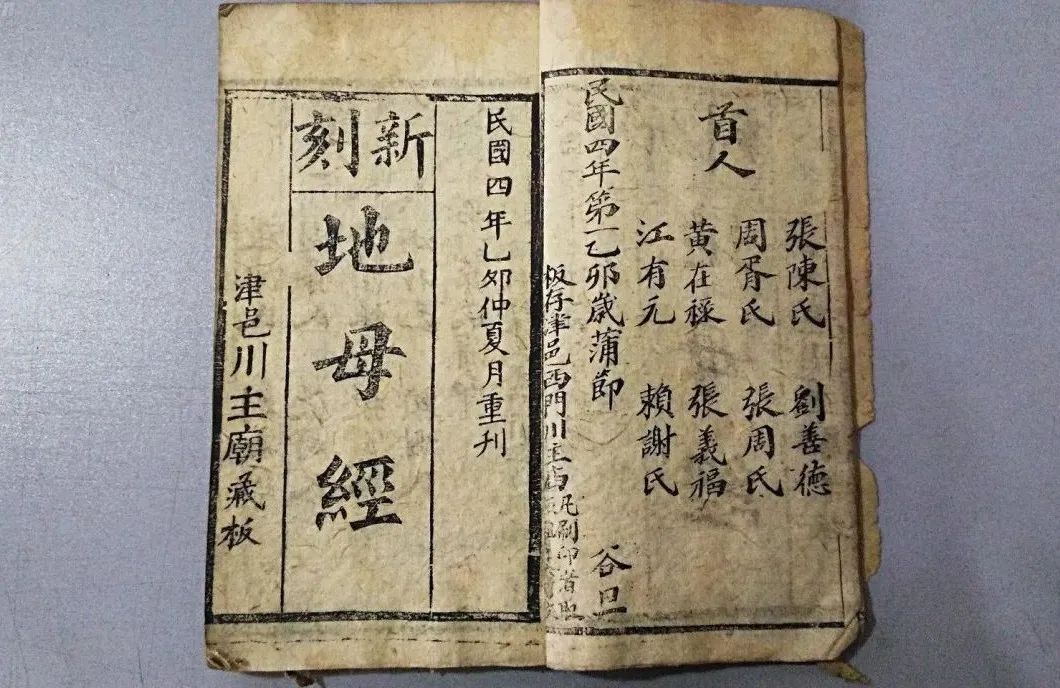 首人
張陳氏 劉善德
周胥氏 張周氏
黄在祿 張義福
江有元 賴謝氏
民國四年第一乙卯歲蒲節 谷旦
板存津邑西門川主 凡刷印者
民國四年乙夘仲夏月重刊
新刻
地母經
津邑川主廟藏板